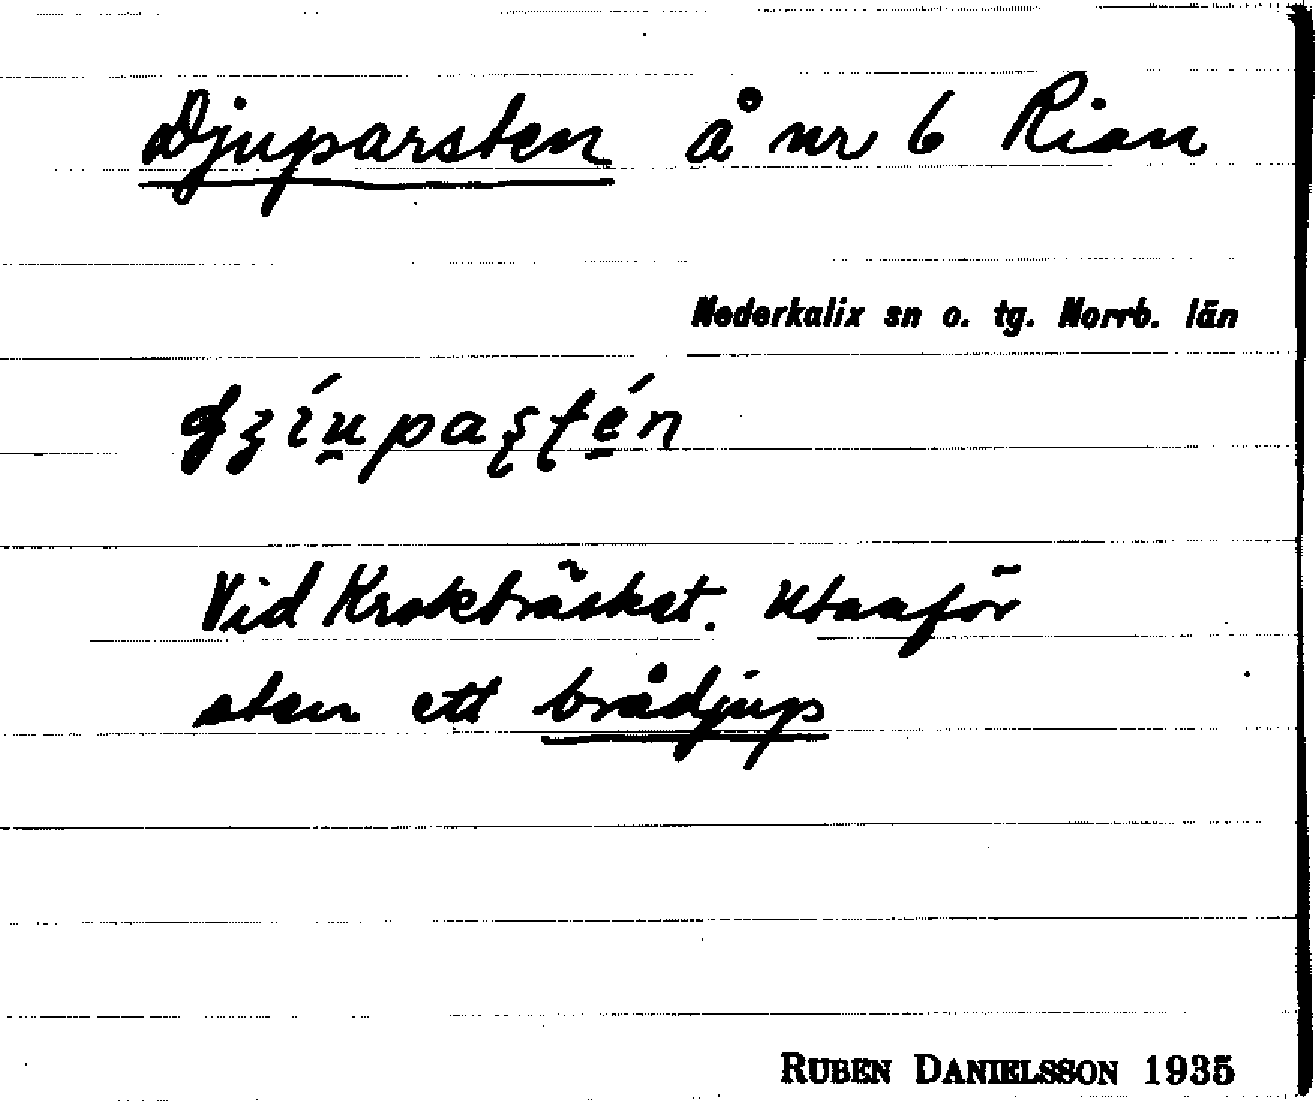 Djuparsten å nr 6 Rian
Nederkalix sn o. tg. Norrb. län
Vid Krokträsket. Utanför
sten ett brådjup
RUBEN DANIELSSON 1935